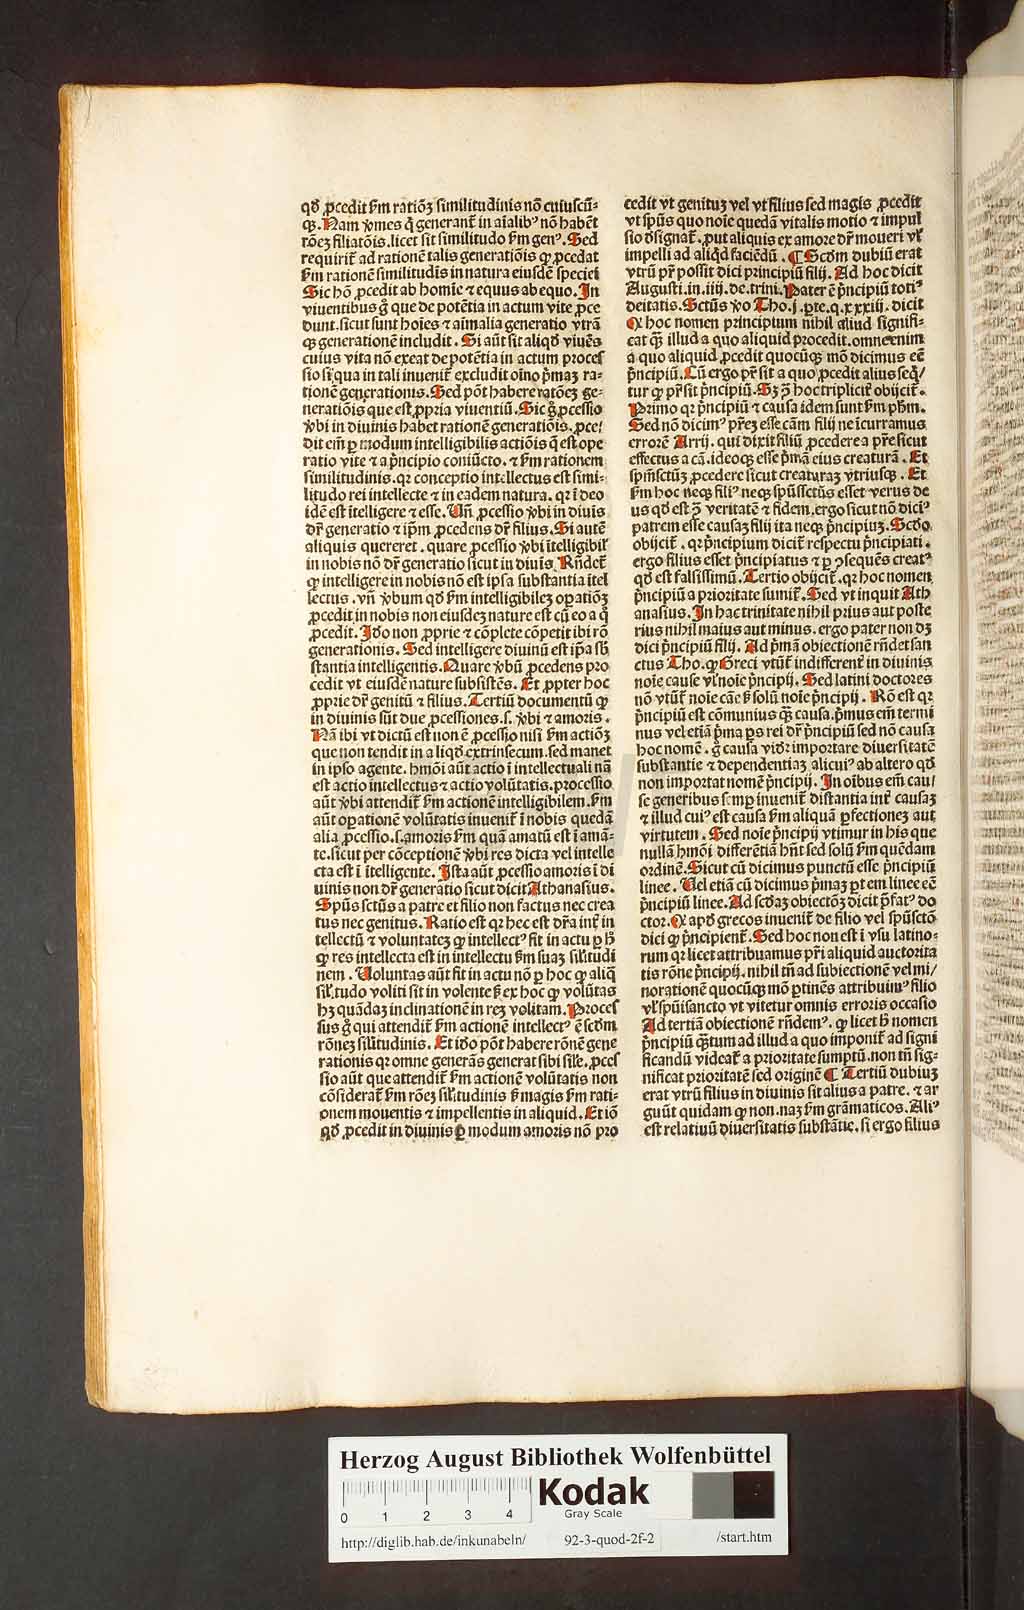 qđ ꝓcedit ẜm ratiōꝫ similitudinis nō cuiuscū⸗
qꝫ. Nam vͦmes q̄ generant᷑ in aīalibꝰ nō habēt
rōeꝫ filiatōis. licet sit similitudo ẜm genꝰ. Sed
requirit᷑ ad rationē talis generatiōis ꝙ ꝓcedat
ẜm rationē similitudīs in natura eiusdē speciei
Sic hō ꝓcedit ab homīe ⁊ equus ab equo. In
viuentibus g̊ que de potētia in actum vite ꝓce
dunt. sicut sunt hoīes ⁊ aīmalia generatio vtrā
qꝫ generationē includit. Si aūt sit aliqđ viuēs
cuius vita nō exeat de potētia in actum proces
sio si qua in tali inuenit᷑ excludit oīno p̄maꝫ ra⸗
tionē generationis. Sed pōt habere ratōeꝫ ge⸗
neratiōis que est ꝓpria viuentiū. Sic g̊ ꝓcessio
v̓bi in diuinis habet rationē generatiōis. ꝓce⸗
dit em̄ ꝑ modum intelligibilis actiōis q̄ est ope
ratio vite ⁊ a p̄ncipio coniūcto. ⁊ ẜm rationem
similitudinis. qꝛ conceptio intellectus est simi⸗
litudo rei intellecte ⁊ in eadem natura. qꝛ ī deo
idē est ītelligere ⁊ esse. Un̄ ꝓcessio v̓bi in diuīs
dr̄ generatio ⁊ ip̄m ꝓcedens dr̄ filius. Si autē
aliquis quereret. quare ꝓcessio v̓bi ītelligibil᷑
in nobis nō dr̄ generatio sicut in diuīs. Rn̄det᷑
ꝙ intelligere in nobis nō est ipsa substantia ītel
lectus. vn̄ v̓bum qđ ẜm intelligibileꝫ oꝑatiōꝫ
ꝓcedit in nobis non eiusdeꝫ nature est cū eo a q̊
ꝓcedit. Iđo non ꝓprie ⁊ cōplete cōpetit ibi rō
generationis. Sed intelligere diuinū est ip̄a sb̄
stantia intelligentis. Quare v̓bū ꝓcedens pro
cedit vt eiusdē nature subsistēs. Et ꝓpter hoc
ꝓprie dr̄ genitū ⁊ filius. Tertiū documentū ꝙ
in diuinis sūt due ꝓcessiones. s. v̓bi ⁊ amoris.
Nā ibi vt dictū est non ē ꝓcessio nisi ẜm actiōꝫ
que non tendit in aliqđ extrinsecum. sed manet
in ipso agente. hmōi aūt actio ī intellectuali nā
est actio intellectus ⁊ actio volūtatis. processio
aūt v̓bi attendit᷑ ẜm actionē intelligibilem. ẜm
aūt opationē volūtatis inuenit᷑ ī nobis quedā
alia ꝓcessio. s. amoris ẜm quā amatū est ī amā⸗
te. sicut per cōceptionē v̓bi res dicta vel intelle
cta est ī ītelligente. Ista aūt ꝓcessio amoris ī di
uinis non dr̄ generatio sicut dicit Athanasius.
Spūs sctūs a patre et filio non factus nec crea
tus nec genitus. Ratio est qꝛ hec est dr̄a int᷑ in
tellectū ⁊ voluntateꝫ ꝙ intellectꝰ fit in actu ꝑ h̊
ꝙ res intellecta est in intellectu ẜm suaꝫ sil᷑itudi
nem. Uoluntas aūt fit in actu nō ꝑ hoc ꝙ aliq̄
sil᷑itudo voliti sit in volente ꝫ ex hoc ꝙ volūtas
hꝫ quādaꝫ inclinationē in reꝫ volitam. Proces
sus g̊ qui attendit᷑ ẜm actionē intellectꝰ ē scđm
rōneꝫ sil᷑itudinis. Et iđo pōt habere rōnē gene
rationis qꝛ omne generās generat sibi sil᷑e. ꝓces
sio aūt que attendit᷑ ẜm actionē volūtatis non
cōsiderat᷑ ẜm rōeꝫ sil᷑itudinis ꝫ magis ẜm rati⸗
onem mouentis ⁊ impellentis in aliquid. Et iō
qđ ꝓcedit in diuinis ꝑ modum amoris nō pro
cedit vt genituꝫ vel vt filius sed magis ꝓcedit
vt spūs quo noīe quedā vitalis motio ⁊ impul
sio designat᷑. ꝓut aliquis ex amore dr̄ moueri vl̓
impelli ad aliqđ faciēdū. ¶ Scđm dubiū erat
vtrū pr̄ possit dici principiū filij. Ad hoc dicit
Augusti. in. iiij. de. trini. Pater ē p̄ncipiū totiꝰ
deitatis. Sctūs v̓o Tho. j. ꝑte. q. xxxiij. dicit
Ꝙ hoc nomen principium nihil aliud signifi⸗
cat qꝫ illud a quo aliquid procedit. omne enim
a quo aliquid ꝓcedit quocūqꝫ mō dicimus eē
p̄ncipiū. Cū ergo pr̄ sit a quo ꝓcedit alius seq̄/
tur ꝙ pr̄ sit p̄ncipiū. Sꝫ ꝯ̄ hoc triplicit᷑ obijcit᷑.
Primo qꝛ p̄ncipiū ⁊ causa idem sunt ẜm ph̄m.
Sed nō dicimꝰ pr̄eꝫ esse cām filij ne īcurramus
errorē Arrij. qui dixit filiū ꝓcedere a pr̄e sicut
effectus a cā. ideoqꝫ esse p̄mā eius creaturā. Et
spm̄sctūꝫ ꝓcedere sicut creaturaꝫ vtriusqꝫ. Et
ẜm hoc neqꝫ filiꝰ neqꝫ spūssctūs esset verus de
us qđ est ꝯ̄ veritatē ⁊ fidem. ergo sicut nō diciꝰ
patrem esse causaꝫ filij ita neqꝫ p̄ncipiuꝫ. Scđo
obijcit᷑. qꝛ p̄ncipium dicit᷑ respectu p̄ncipiati.
ergo filius esset p̄ncipiatus ⁊ ꝑ ꝯsequēs creatꝰ
qđ est falsissimū. Tertio obijcit᷑. qꝛ hoc nomen
p̄ncipiū a prioritate sumit᷑. Sed vt inquit Ath
anasius. In hac trinitate nihil prius aut poste
rius nihil maius aut minus. ergo pater non dꝫ
dici p̄ncipiū filij. Ad p̄mā obiectionē rn̄det san
ctus Tho. ꝙ Greci vtūt᷑ indifferent᷑ in diuinis
noīe cause vl̓ noīe p̄ncipij. Sed latini doctores
nō vtūt᷑ noīe cāe ꝫ solū noīe p̄ncipij. Rō est qꝛ
p̄ncipiū est cōmunius qꝫ causa. p̄mus em̄ termi
nus vel etiā p̄ma ꝑs rei dr̄ p̄ncipiū sed nō causa
hoc nomē. g̊ causa videt᷑ importare diuersitatē
substantie ⁊ dependentiaꝫ alicuiꝰ ab altero qđ
non importat nomē p̄ncipij. In oībus em̄ cau/
se generibus semꝑ inuenit᷑ distantia int᷑ causaꝫ
⁊ illud cuiꝰ est causa ẜm aliquā ꝑfectioneꝫ aut
virtutem. Sed noīe p̄ncipij vtimur in his que
nullā hmōi differētiā hn̄t sed solū ẜm quēdam
ordinē. Sicut cū dicimus punctū esse p̄ncipiū
linee. Uel etiā cū dicimus p̄maꝫ ꝑtem linee eē
p̄ncipiū linee. Ad scđaꝫ obiectōꝫ dicit p̄fatꝰ do
ctor. Ꝙ apđ grecos inuenit᷑ de filio vel spūsctō
dici ꝙ p̄ncipient᷑. Sed hoc non est ī vsu latino⸗
rum qꝛ licet attribuamus pr̄i aliquid auctorita
tis rōne p̄ncipij. nihil tn̄ ad subiectionē vel mi/
norationē quocūqꝫ mō ꝑtinēs attribuimꝰ filio
vl̓ spūisancto vt vitetur omnis erroris occasio
Ad tertiā obiectionē rn̄demꝰ. ꝙ licet h̊ nomen
p̄ncipiū qꝫtum ad illud a quo imponit᷑ ad signi
ficandū videat᷑ a prioritate sumptū. non tn̄ sig⸗
nificat prioritatē sed originē ¶ Tertiū dubiuꝫ
erat vtrū filius in diuinis sit alius a patre. ⁊ ar
guūt quidam ꝙ non. naꝫ ẜm grāmaticos. Aliꝰ
est relatiuū diuersitatis substātie. si ergo filius
Herzog August Bibliothek Wolfenbüttel
0 1 2 3 4
Kodak
Gray Scale
http://diglib.hab.de/inkunabeln/ 92-3-quod-2f-2 /start.htm